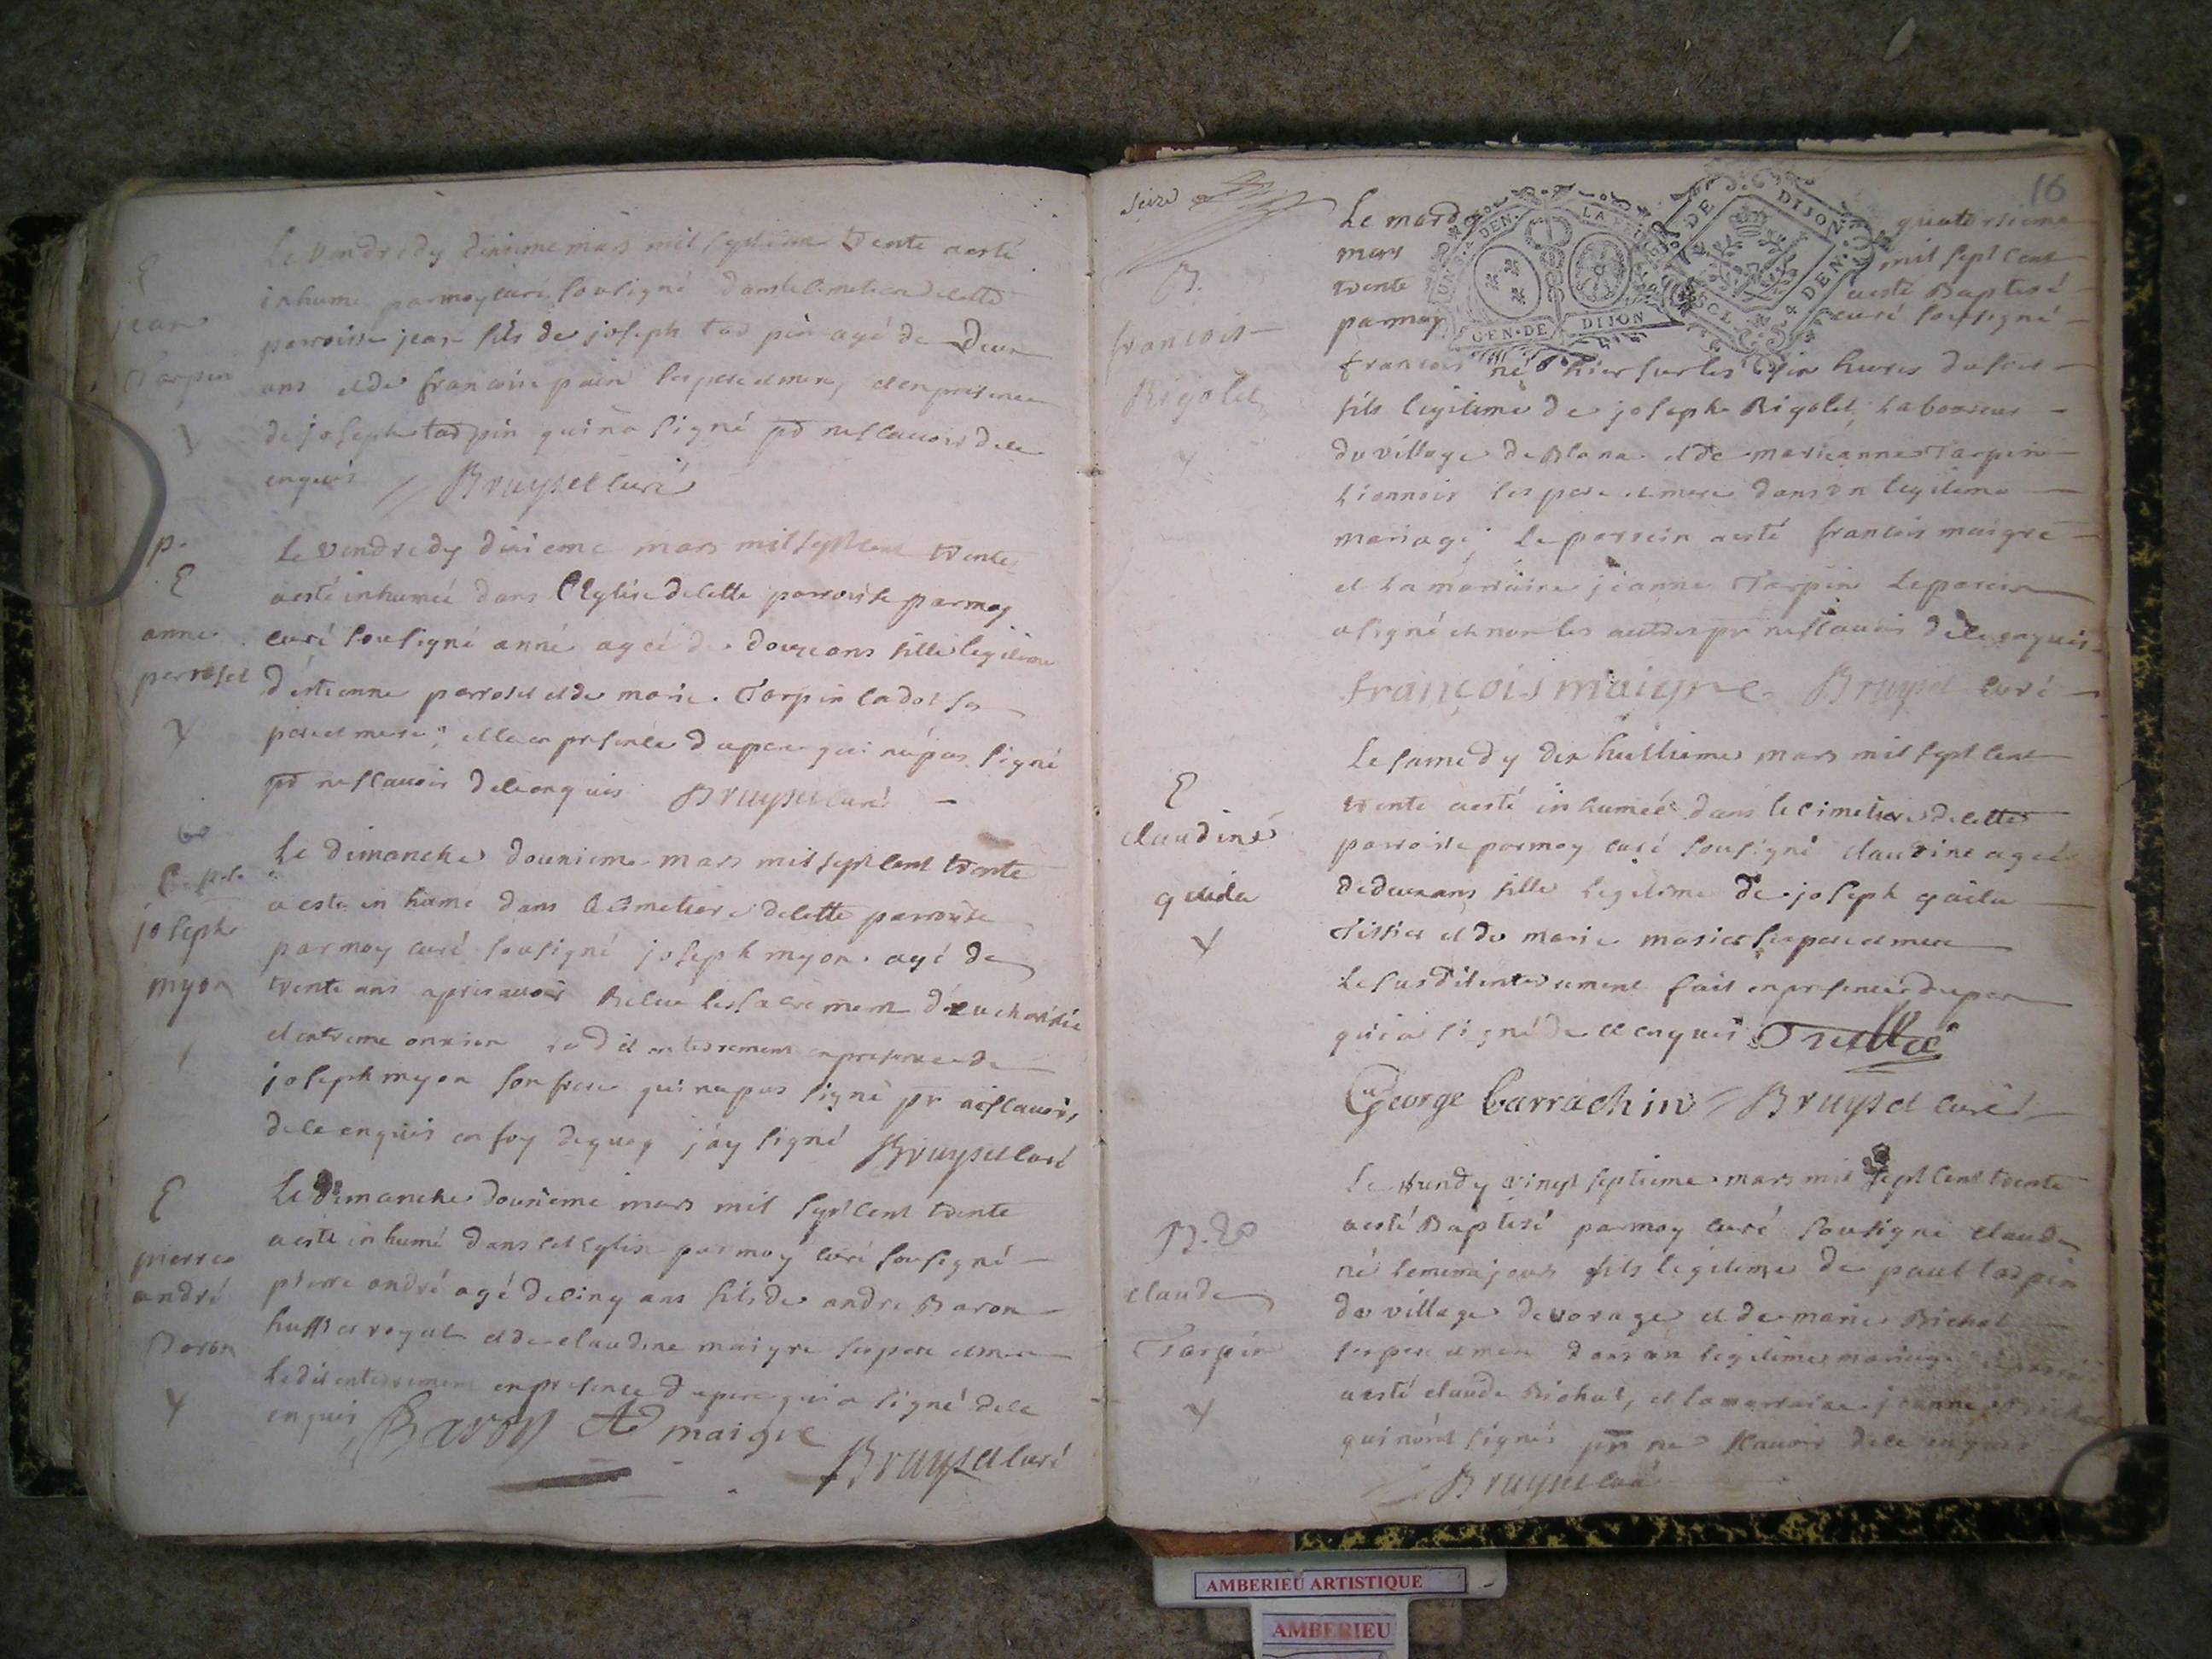 E
jean
Tarpin
Le vendredy dixieme mars mil sept cent trente a esté
inhumé par moy curé sousigné dans le cimetiere de cette
parroisse jean fils de joseph tarpin agé de deux
ans et de francoise pain ses pere et mere, et en presence
de joseph tarpin qui n'a signé pr ne scavoir de ce
enquis Bruyset curé
p.
E
anne
perroset
Le vendredy dixieme mars mil sept cent trente
a esté inhumée dans l'Eglise de cette parroisse par moy
curé sousigné anne agée de douze ans fille legitime
d'estienne perroset et de marie Tarpin cadet ses
pere et mere; elle en presence du pere qui n'a pas signé
pr ne scavoir de ce enquis Bruyset curé
E
joseph
myon
Le dimanche douzieme mars mil sept cent trente
a este inhumé dans le cimetiere de cette parroisse
par moy curé sousigné joseph myon agé de
trente ans apres avoir receu les sacrement d'eucharistie
et extreme onxion ledit enterrement en presence de
joseph myon son frere qui n'a pas signé pr ne scavoir,
de ce enquis en foy de quoy j'ay signé Bruyset curé
E
pierre
andré
Baron
Le dimanche douzieme mars mil sept cent trente
a este inhumé dans cet Eglise par moy curé sousigné
pierre andré agé de cinq ans fils de andré Baron
huissier royal et de claudine maigre ses pere et mere
ledit enterrement en presence du pere qui a signé de ce
enquis Baron maigre
Bruyset curé
16
seize
B.
francois
Rigolet
Le mardy quatorzieme
mars mil sept cent
trente a esté Baptisé
par moy curé sousigné
GEN. DE DIJON
DE DIJON
4 DEN.
francois né hier sur les six heures du soir
fils legitime de joseph Rigolet, Laboureur
du village de Blana et de marieanne Tarpin
ses pere et mere dans un legitime
mariage; le parrein a esté francois maigre
et la marraine jeanne Tarpin le parein
a signé et non les autres pr ne scavoir de ce enquis
françois maigre Bruyset curé
E
claudine
Le samedy dix huitieme mars mil sept cent
trente a esté inhumée dans le cimetiere de cette
parroisse par moy curé sousigné claudine agée
de deux ans fille legitime de joseph
Tissier et de marie ses pere et mere
Le susdit enterrement fait en presence du pere
qui a signé de ce enquis
George Carrachin Bruyset curé
B.
claude
Tarpin
Le lundy vingt septieme mars mil sept cent trente
a esté Baptisé par moy curé sousigné claude
né le meme jour fils legitime de paul tarpin
du village de vorage et de marie Bichat
ses pere et mere dans un legitime mariage
a esté claude Bichat, et la marraine jeanne Bichat
qui n'ont signés pr ne scavoir de ce enquis
Bruyset curé
AMBERIEU ARTISTIQUE
AMBERIEU